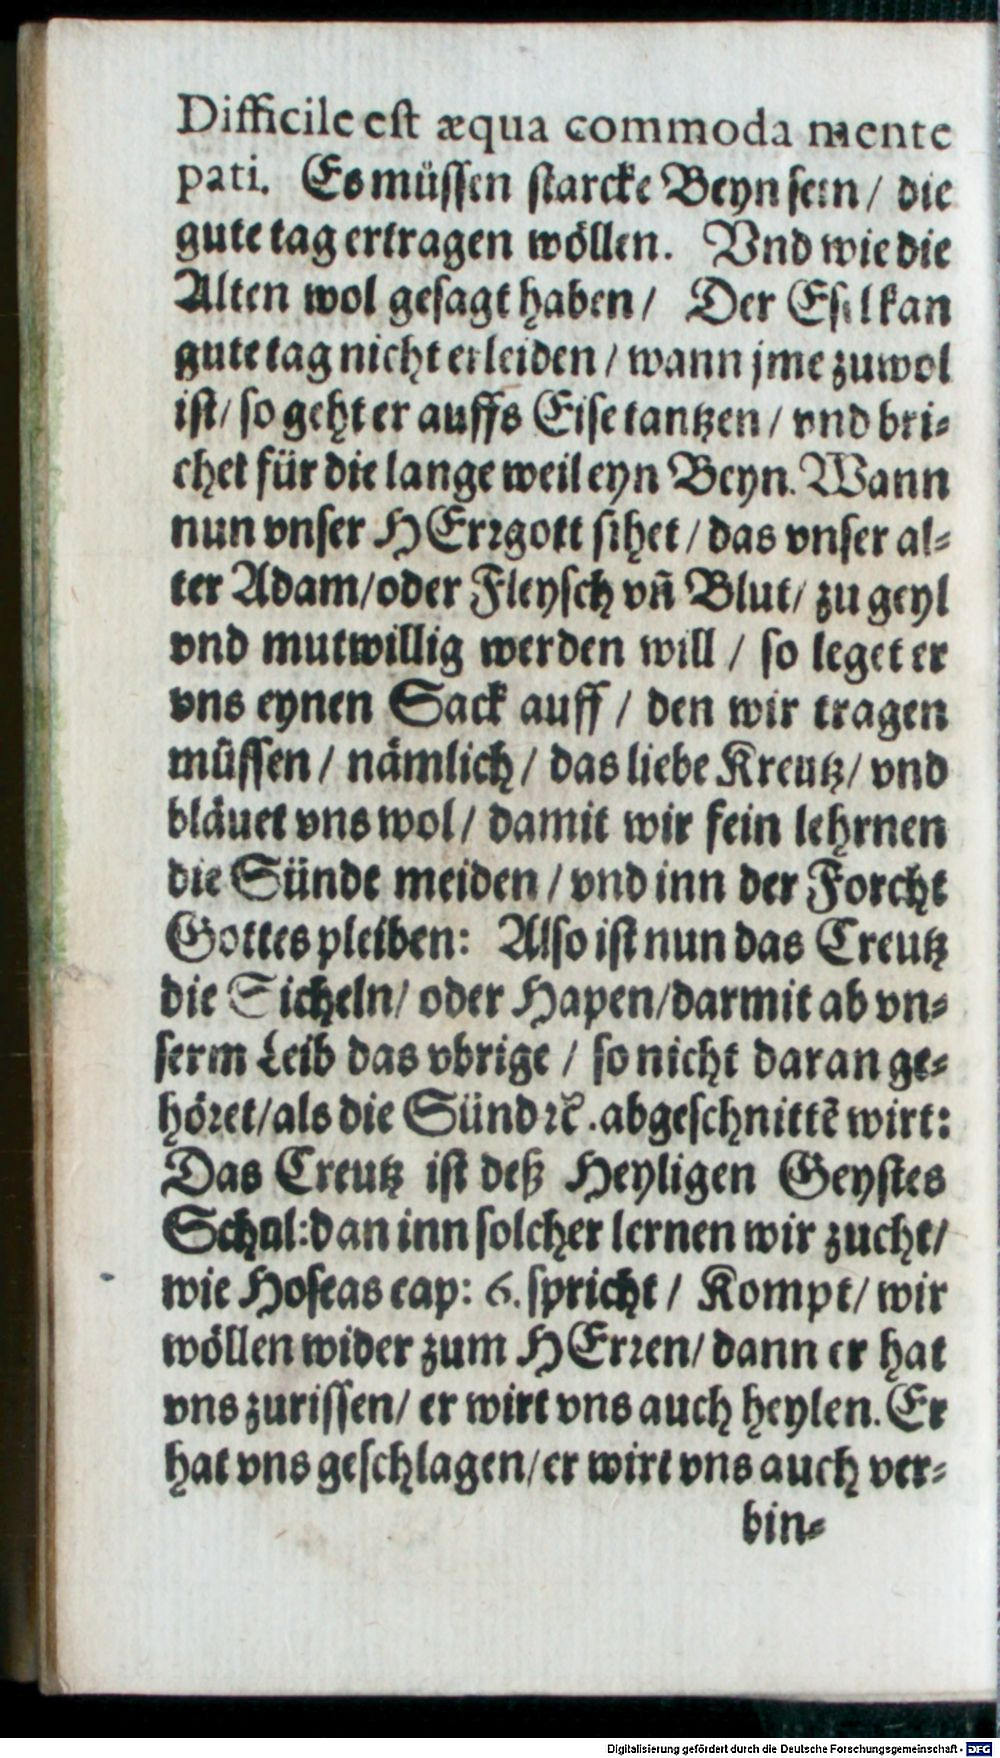 Difficile est æqua commoda mente
pati. Es müssen starcke Beyn sein / die
gute tag ertragen wöllen. Vnd wie die
Alten wol gesagt haben / Der Esel kan
gute tag nicht erleiden / wann jme zuwol
ist / so geht er auffs Eise tantzen / vnd bri-
chet für die lange weil eyn Beyn. Wann
nun vnser HErrgott sihet / das vnser al-
ter Adam / oder Fleysch vñ Blut / zu geyl
vnd mutwillig werden will / so leget er
vns eynen Sack auff / den wir tragen
müssen / nämlich / das liebe Kreutz / vnd
bläuet vns wol / damit wir fein lehrnen
die Sünde meiden / vnd inn der Forcht
Gottes pleiben: Also ist nun das Creutz
die Sicheln / oder Hapen / darmit ab vn-
serm Leib das vbrige / so nicht daran ge-
höret / als die Sünd ꝛc̃. abgeschnittẽ wirt:
Das Creutz ist deß Heyligen Geystes
Schul: dan inn solcher lernen wir zucht /
wie Hoseas cap: 6. spricht / Kompt / wir
wöllen wider zum HErren / dann er hat
vns zurissen / er wirt vns auch heylen. Er
hat vns geschlagen / er wirt vns auch ver-
bin-
Digitalisierung gefördert durch die Deutsche Forschungsgemeinschaft - DFG